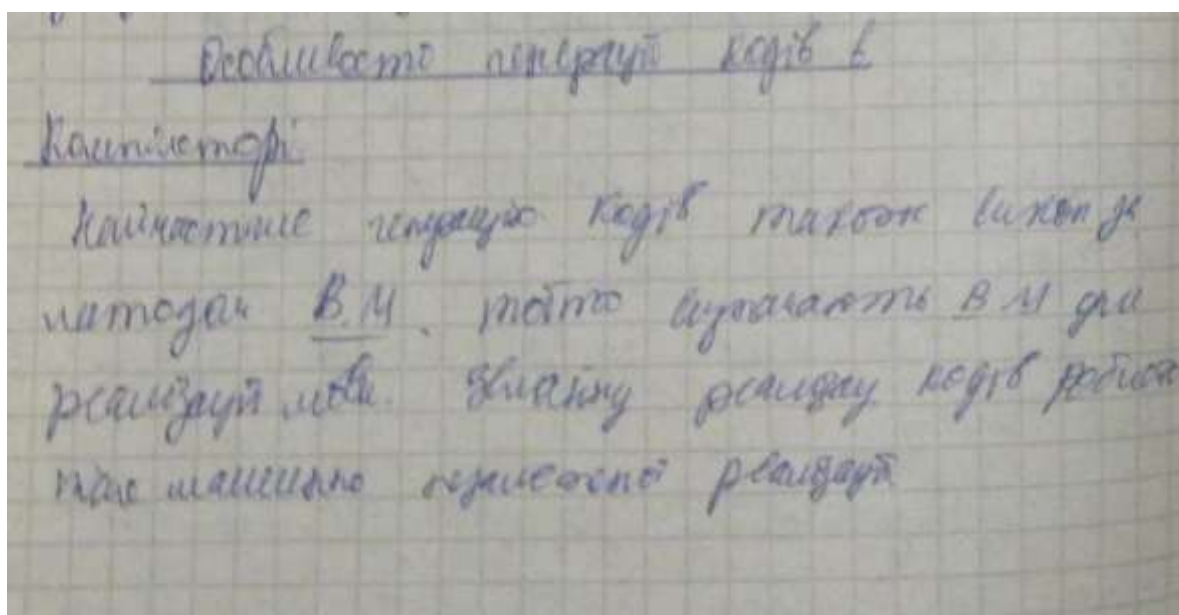 Особливості генерації кодів в
Компіляторі.
Найчастіше генерацію кодів також викон за
методом В.М. тобто визначають В М для
реалізації мови. Звичайну реалізац кодів роблять
машинно незалежної реалізації